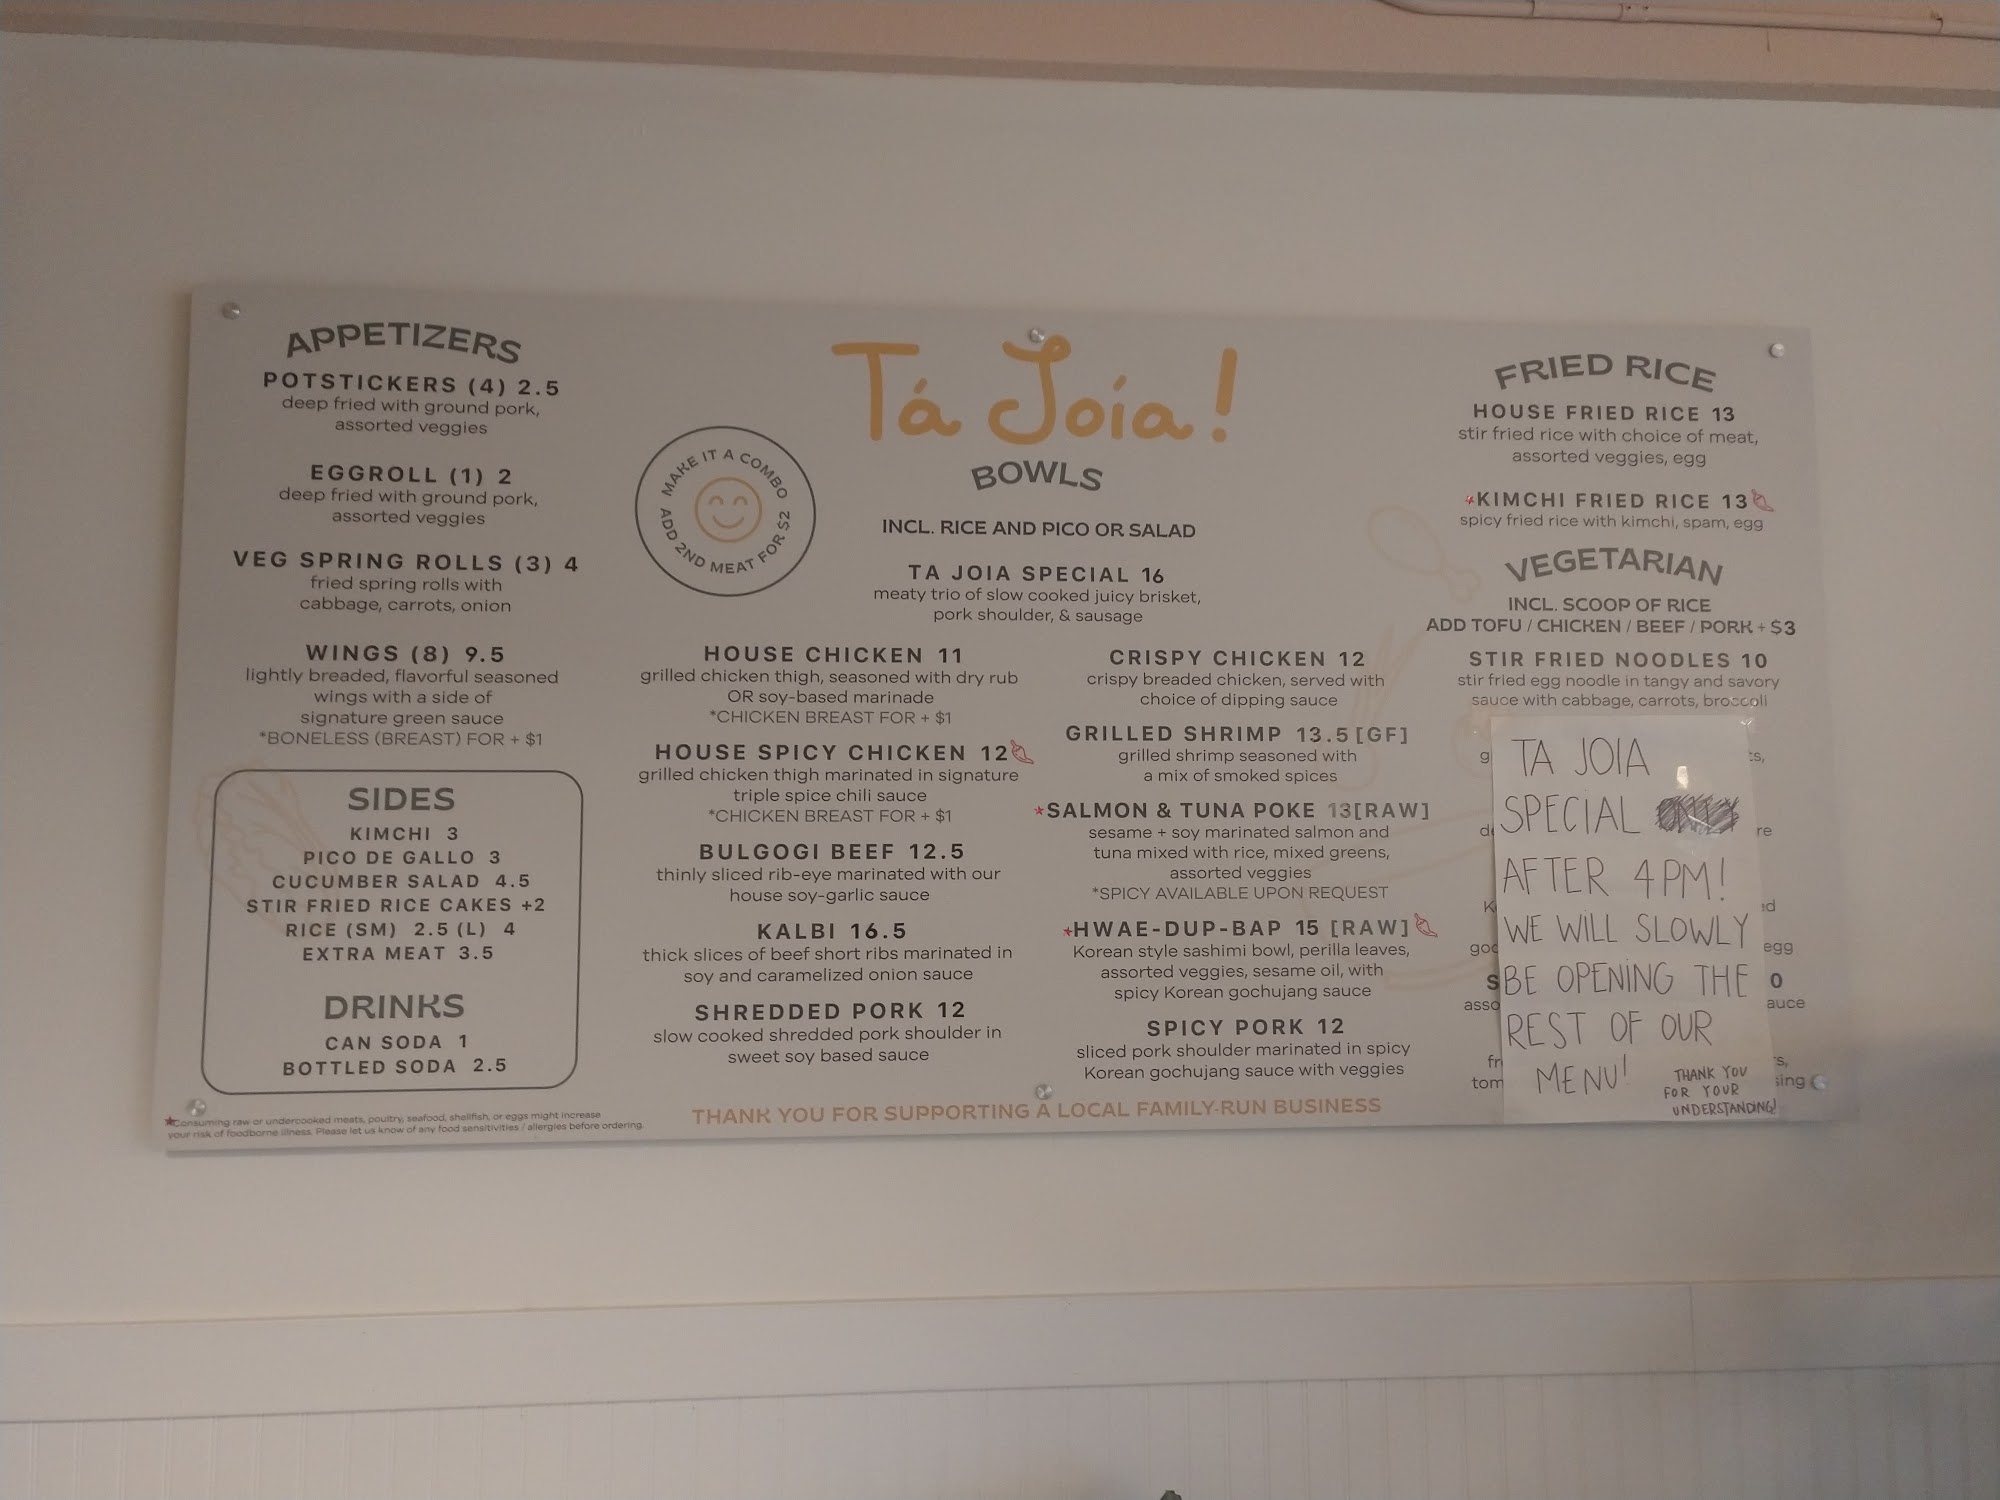 APPETIZERS
POTSTICKERS (4) 2.5
deep fried with ground pork,
assorted veggies
EGGROLL (1) 2
deep fried with ground pork,
assorted veggies
VEG SPRING ROLLS (3) 4
fried spring rolls with
cabbage, carrots, onion
WINGS (8) 9.5
lightly breaded, flavorful seasoned
wings with a side of
signature green sauce
*BONELESS (BREAST) FOR + $1
SIDES
KIMCHI 3
PICO DE GALLO 3
CUCUMBER SALAD 4.5
STIR FRIED RICE CAKES +2
RICE (SM) 2.5 (L) 4
EXTRA MEAT 3.5
DRINKS
CAN SODA 1
BOTTLED SODA 2.5
*Consuming raw or undercooked meats, poultry, seafood, shellfish, or eggs might increase
your risk of foodborne illness. Please let us know of any food sensitivities / allergies before ordering.
Tá Joía!
MAKE IT A COMBO
ADD 2ND MEAT FOR $2
BOWLS
INCL. RICE AND PICO OR SALAD
TA JOIA SPECIAL 16
meaty trio of slow cooked juicy brisket,
pork shoulder, & sausage
HOUSE CHICKEN 11
grilled chicken thigh, seasoned with dry rub
OR soy-based marinade
*CHICKEN BREAST FOR + $1
HOUSE SPICY CHICKEN 12
grilled chicken thigh marinated in signature
triple spice chili sauce
*CHICKEN BREAST FOR + $1
BULGOGI BEEF 12.5
thinly sliced rib-eye marinated with our
house soy-garlic sauce
KALBI 16.5
thick slices of beef short ribs marinated in
soy and caramelized onion sauce
SHREDDED PORK 12
slow cooked shredded pork shoulder in
sweet soy based sauce
CRISPY CHICKEN 12
crispy breaded chicken, served with
choice of dipping sauce
GRILLED SHRIMP 13.5 [GF]
grilled shrimp seasoned with
a mix of smoked spices
*SALMON & TUNA POKE 13[RAW]
sesame + soy marinated salmon and
tuna mixed with rice, mixed greens,
assorted veggies
*SPICY AVAILABLE UPON REQUEST
*HWAE-DUP-BAP 15 [RAW]
Korean style sashimi bowl, perilla leaves,
assorted veggies, sesame oil, with
spicy Korean gochujang sauce
SPICY PORK 12
sliced pork shoulder marinated in spicy
Korean gochujang sauce with veggies
THANK YOU FOR SUPPORTING A LOCAL FAMILY-RUN BUSINESS
FRIED RICE
HOUSE FRIED RICE 13
stir fried rice with choice of meat,
assorted veggies, egg
*KIMCHI FRIED RICE 13
spicy fried rice with kimchi, spam, egg
VEGETARIAN
INCL. SCOOP OF RICE
ADD TOFU / CHICKEN / BEEF / PORK + $3
STIR FRIED NOODLES 10
stir fried egg noodle in tangy and savory
sauce with cabbage, carrots, broccoli
TA JOIA
SPECIAL
AFTER 4PM!
WE WILL SLOWLY
BE OPENING THE
REST OF OUR
MENU!
THANK YOU
FOR YOUR
UNDERSTANDING!